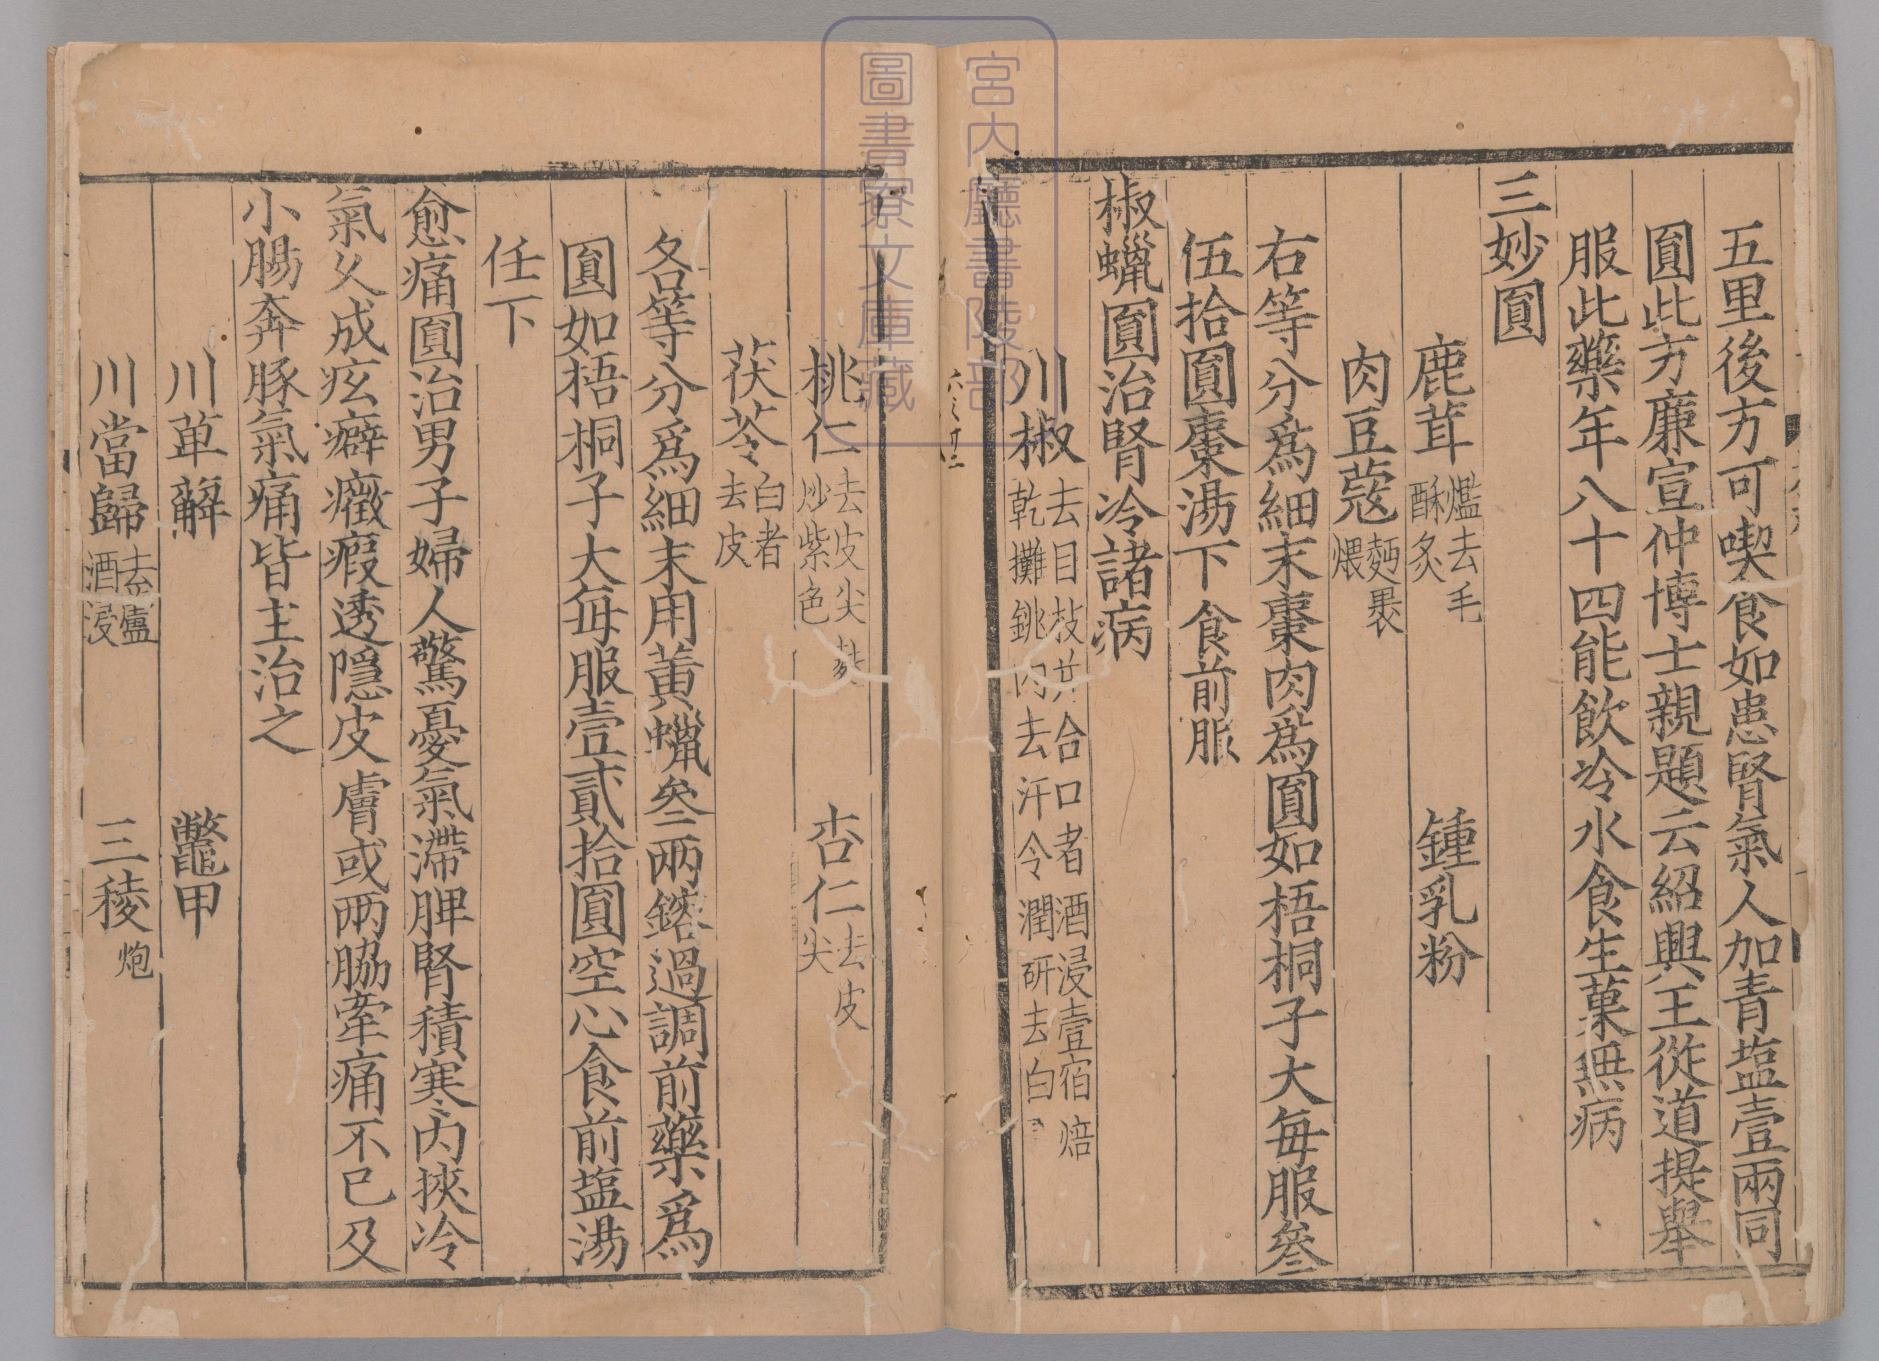 五里後方可喫食如患腎氣人加青塩壹兩同
圓此方廉宣仲博士親題云紹興王從道提舉
服此藥年八十四能飲冷水食生菓無病
三妙圓
鹿茸爁去毛酥炙 鍾乳粉
肉豆蔻麪裹煨
右等分爲細末棗肉爲圓如梧桐子大每服叄
伍拾圓棗湯下食前服
椒蠟圓治腎冷諸病
川椒去目枝并合口者酒浸壹宿焙乾攤銚内去汗令潤研去白
桃仁去皮尖麩炒紫色 杏仁去皮尖
茯苓白者去皮
各等分爲細末用黄蠟叄兩鎔過調前藥爲
圓如梧桐子大每服壹貳拾圓空心食前塩湯
任下
愈痛圓治男子婦人驚憂氣滯脾腎積寒内挾冷
氣久成痃癖癥瘕透隱皮膚或兩脇牽痛不已及
小腸奔豚氣痛皆主治之
川萆薢 鼈甲
川當歸去蘆酒浸 三稜炮
宮内廳書陵部
圖書寮文庫藏